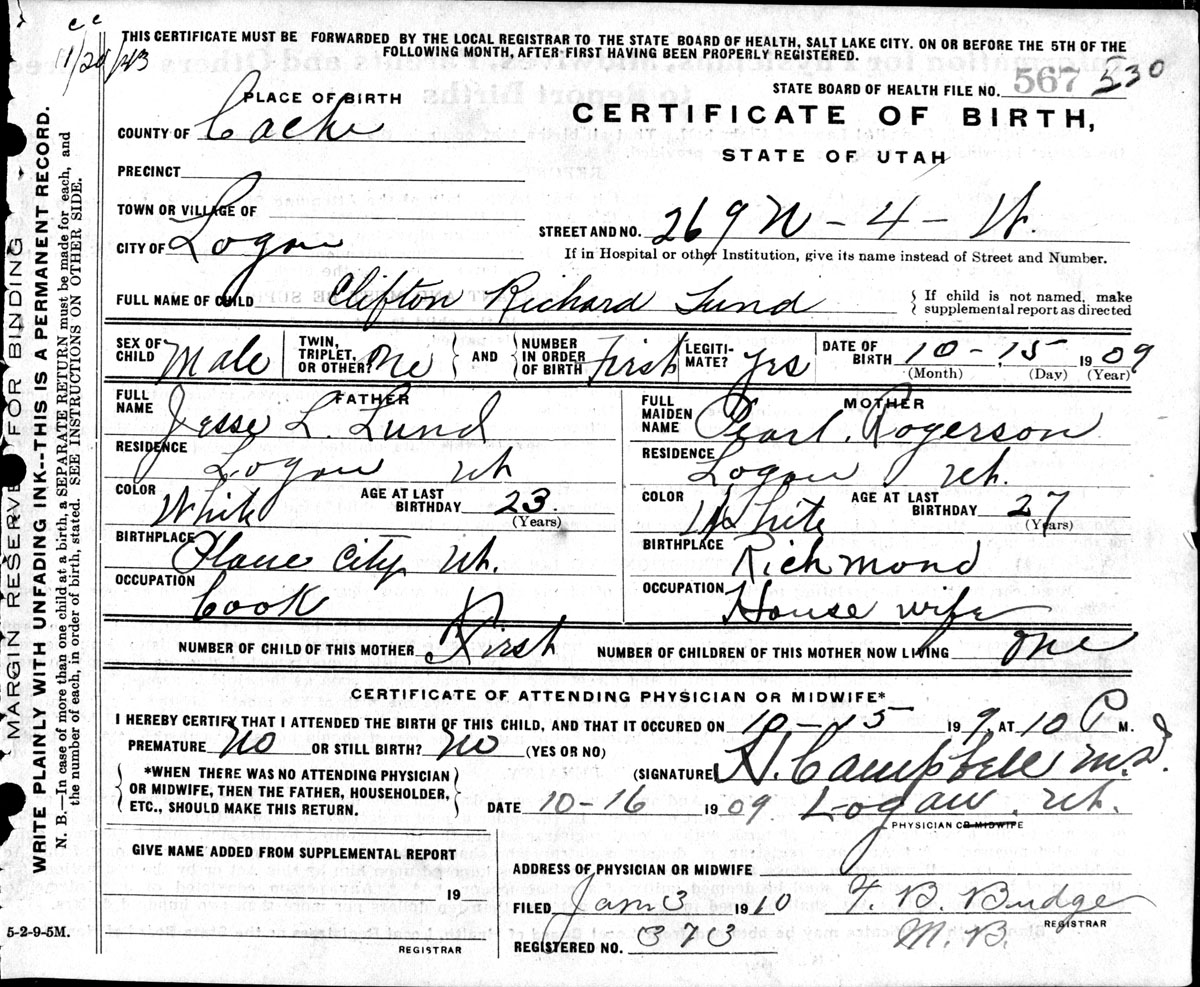 c c
11/20/43
THIS CERTIFICATE MUST BE FORWARDED BY THE LOCAL REGISTRAR TO THE STATE BOARD OF HEALTH, SALT LAKE CITY. ON OR BEFORE THE 5TH OF THE
FOLLOWING MONTH, AFTER FIRST HAVING BEEN PROPERLY REGISTERED.
STATE BOARD OF HEALTH FILE NO. 567 530
PLACE OF BIRTH
CERTIFICATE OF BIRTH,
STATE OF UTAH
COUNTY OF Cache
PRECINCT
TOWN OR VILLAGE OF
CITY OF Logan
STREET AND NO. 269 N - 4 - W.
If in Hospital or other Institution, give its name instead of Street and Number.
FULL NAME OF CHILD Clifton Richard Lund
{ If child is not named, make
supplemental report as directed
SEX OF CHILD Male
TWIN, TRIPLET, OR OTHER? One
AND
NUMBER IN ORDER OF BIRTH First
LEGITI-MATE? Yes
DATE OF BIRTH 10 - 15, 1909
(Month) (Day) (Year)
FATHER
FULL NAME Jesse L. Lund
RESIDENCE Logan Ut
COLOR White AGE AT LAST BIRTHDAY 23
(Years)
BIRTHPLACE City Ut.
OCCUPATION Cook
MOTHER
FULL MAIDEN NAME Pearl. Rogerson
RESIDENCE Logan Ut.
COLOR White AGE AT LAST BIRTHDAY 27
(Years)
BIRTHPLACE Richmond
OCCUPATION House wife
NUMBER OF CHILD OF THIS MOTHER First NUMBER OF CHILDREN OF THIS MOTHER NOW LIVING one
CERTIFICATE OF ATTENDING PHYSICIAN OR MIDWIFE*
I HEREBY CERTIFY THAT I ATTENDED THE BIRTH OF THIS CHILD, AND THAT IT OCCURED ON 10-15 199, AT 10 P M.
PREMATURE No OR STILL BIRTH? No (YES OR NO)
(SIGNATURE) Campbell M.D.
{ *WHEN THERE WAS NO ATTENDING PHYSICIAN
OR MIDWIFE, THEN THE FATHER, HOUSEHOLDER,
ETC., SHOULD MAKE THIS RETURN. }
DATE 10-16 1909 Logan, Ut.
PHYSICIAN OR MIDWIFE
GIVE NAME ADDED FROM SUPPLEMENTAL REPORT
19
REGISTRAR
ADDRESS OF PHYSICIAN OR MIDWIFE
FILED Jan 3 1910 B Budge
M. B. REGISTRAR
REGISTERED NO. 373
5-2-9-5M.
MARGIN RESERVED FOR BINDING
WRITE PLAINLY WITH UNFADING INK--THIS IS A PERMANENT RECORD.
N. B.--In case of more than one child at a birth, a SEPARATE RETURN must be made for each, and
the number of each, in order of birth, stated. SEE INSTRUCTIONS ON OTHER SIDE.